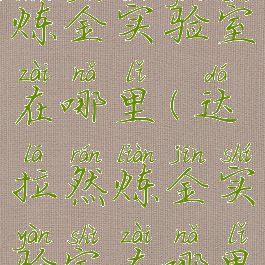 炼金实验室
zài nǎ lǐ dá
在哪里(达
lā rán liàn jīn shí
拉然炼金实
yàn shì zài nǎ lǐ
验室在哪里